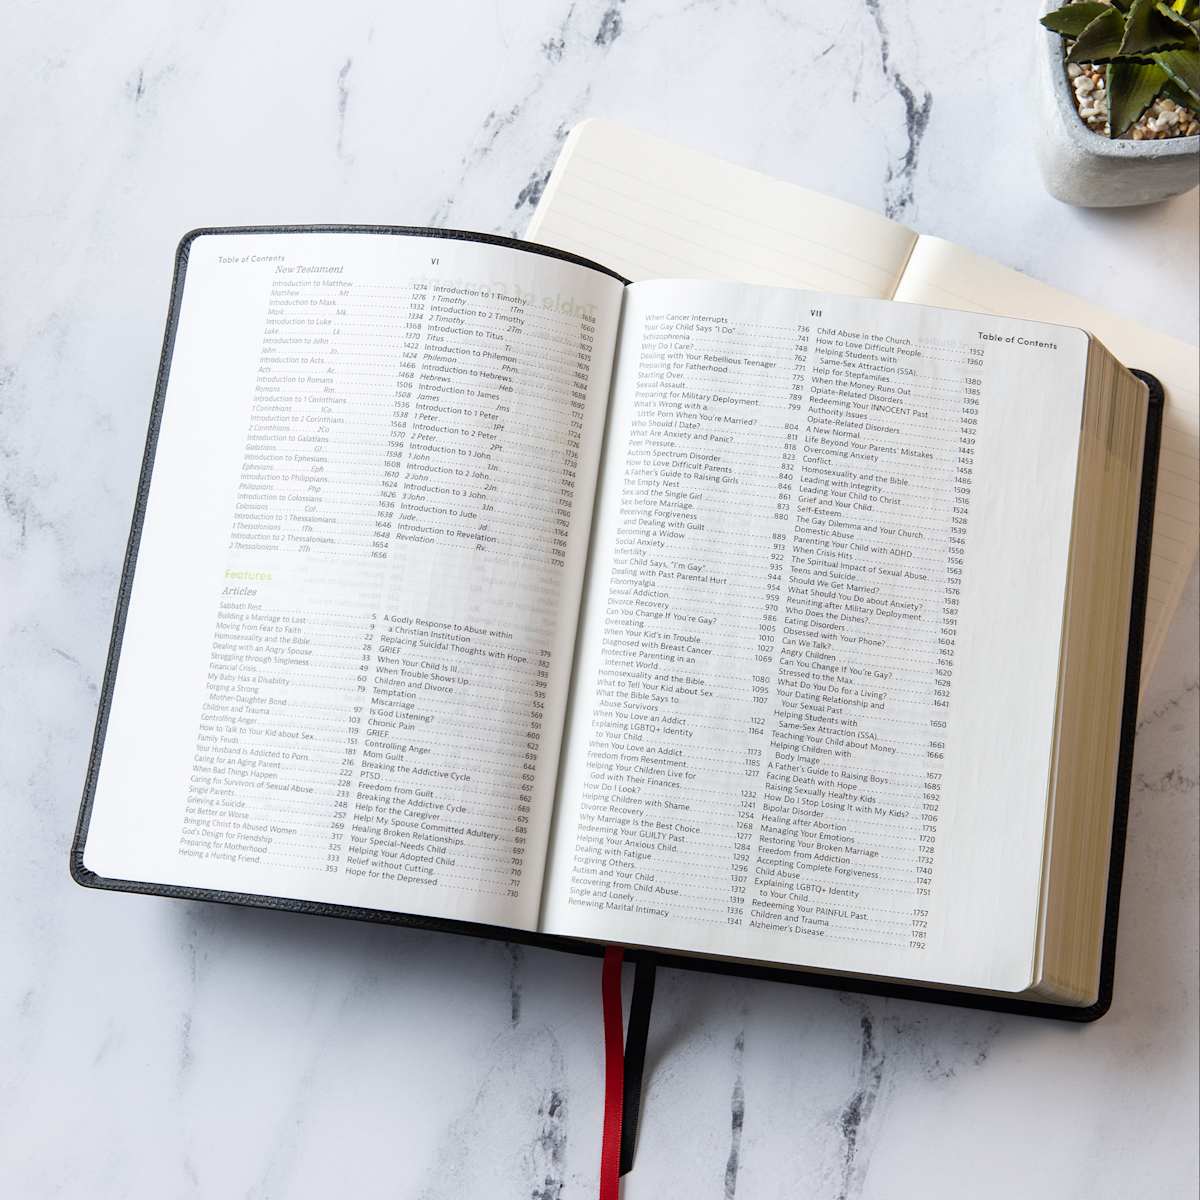 Table of Contents
VI
New Testament
Introduction to Matthew 1274
Matthew Mt 1276
Introduction to Mark 1332
Mark Mk 1334
Introduction to Luke 1368
Luke Lk 1370
Introduction to John 1422
John Jn 1424
Introduction to Acts 1466
Acts Ac 1468
Introduction to Romans 1506
Romans Rm 1508
Introduction to 1 Corinthians 1536
1 Corinthians 1Co 1538
Introduction to 2 Corinthians 1568
2 Corinthians 2Co 1570
Introduction to Galatians 1596
Galatians Gl 1598
Introduction to Ephesians 1608
Ephesians Eph 1610
Introduction to Philippians 1624
Philippians Php 1626
Introduction to Colossians 1636
Colossians Col 1638
Introduction to 1 Thessalonians 1646
1 Thessalonians 1Th 1648
Introduction to 2 Thessalonians 1654
2 Thessalonians 2Th 1656
Introduction to 1 Timothy 1658
1 Timothy 1Tm 1660
Introduction to 2 Timothy 1670
2 Timothy 2Tm
Introduction to Titus
Titus Ti
Introduction to Philemon
Philemon Phm
Introduction to Hebrews
Hebrews Heb
Introduction to James
James Jms
Introduction to 1 Peter
1 Peter 1Pt
Introduction to 2 Peter
2 Peter 2Pt
Introduction to 1 John
1 John 1Jn
Introduction to 2 John
2 John 2Jn
Introduction to 3 John
3 John 3Jn
Introduction to Jude
Jude Jd
Introduction to Revelation 1768
Revelation Rv 1770
Features
Articles
Sabbath Rest 5
Building a Marriage to Last 9
Moving from Fear to Faith 22
Homosexuality and the Bible 28
Dealing with an Angry Spouse 33
Struggling through Singleness 49
Financial Crisis 60
My Baby Has a Disability 79
Forging a Strong
Mother-Daughter Bond 97
Children and Trauma 103
Controlling Anger 119
How to Talk to Your Kid about Sex 151
Family Feuds 181
Your Husband Is Addicted to Porn 216
Caring for an Aging Parent 222
When Bad Things Happen 228
Caring for Survivors of Sexual Abuse 233
Single Parents 248
Grieving a Suicide 257
For Better or Worse 269
Bringing Christ to Abused Women 317
God's Design for Friendship 325
Preparing for Motherhood 333
Helping a Hurting Friend 353
A Godly Response to Abuse within
a Christian Institution 379
Replacing Suicidal Thoughts with Hope 382
GRIEF
When Your Child Is Ill 399
When Trouble Shows Up 535
Children and Divorce 554
Temptation 569
Miscarriage 591
Is God Listening? 600
Chronic Pain 622
GRIEF 639
Controlling Anger 644
Mom Guilt 650
Breaking the Addictive Cycle 657
PTSD 662
Freedom from Guilt 669
Breaking the Addictive Cycle 675
Help for the Caregiver 685
Help! My Spouse Committed Adultery 691
Healing Broken Relationships 697
Your Special-Needs Child 703
Helping Your Adopted Child 710
Relief without Cutting 717
Hope for the Depressed 730
VII
Table of Contents
When Cancer Interrupts 736
Your Gay Child Says "I Do" 741
Schizophrenia 748
Why Do I Care? 762
Dealing with Your Rebellious Teenager 771
Preparing for Fatherhood 775
Starting Over 781
Sexual Assault 789
Preparing for Military Deployment 799
What's Wrong with a
Little Porn When You're Married? 804
Who Should I Date? 811
What Are Anxiety and Panic? 818
Peer Pressure 823
Autism Spectrum Disorder 832
How to Love Difficult Parents 840
A Father's Guide to Raising Girls 846
The Empty Nest 861
Sex and the Single Girl 873
Sex before Marriage 880
Receiving Forgiveness
and Dealing with Guilt 889
Becoming a Widow 913
Social Anxiety 922
Infertility 935
Your Child Says, "I'm Gay" 944
Dealing with Past Parental Hurt 954
Fibromyalgia 959
Sexual Addiction 970
Divorce Recovery 986
Can You Change If You're Gay? 1005
Overeating 1010
When Your Kid's in Trouble 1027
Diagnosed with Breast Cancer 1069
Protective Parenting in an
Internet World 1080
Homosexuality and the Bible 1095
What to Tell Your Kid about Sex 1107
What the Bible Says to
Abuse Survivors 1122
When You Love an Addict 1164
Explaining LGBTQ+ Identity
to Your Child 1173
When You Love an Addict 1185
Freedom from Resentment 1217
Helping Your Children Live for
God with Their Finances 1232
How Do I Look? 1241
Helping Children with Shame 1254
Divorce Recovery 1268
Why Marriage Is the Best Choice 1277
Redeeming Your GUILTY Past 1284
Helping Your Anxious Child 1292
Dealing with Fatigue 1296
Forgiving Others 1307
Autism and Your Child 1312
Recovering from Child Abuse 1319
Single and Lonely 1336
Renewing Marital Intimacy 1341
Child Abuse in the Church 1352
How to Love Difficult People 1360
Helping Students with
Same-Sex Attraction (SSA) 1380
Help for Stepfamilies 1385
When the Money Runs Out 1396
Opiate-Related Disorders 1403
Redeeming Your INNOCENT Past 1408
Authority Issues 1432
Opiate-Related Disorders 1439
A New Normal 1445
Life Beyond Your Parents' Mistakes 1453
Overcoming Anxiety 1458
Conflict 1486
Homosexuality and the Bible 1509
Leading with Integrity 1516
Leading Your Child to Christ 1524
Grief and Your Child 1528
Self-Esteem 1539
The Gay Dilemma and Your Church 1546
Domestic Abuse 1550
Parenting Your Child with ADHD 1556
When Crisis Hits 1563
The Spiritual Impact of Sexual Abuse 1571
Teens and Suicide 1576
Should We Get Married? 1581
What Should You Do about Anxiety? 1587
Reuniting after Military Deployment 1591
Who Does the Dishes? 1601
Eating Disorders 1604
Obsessed with Your Phone? 1612
Can We Talk? 1616
Angry Children 1620
Can You Change If You're Gay? 1628
Stressed to the Max 1632
What Do You Do for a Living? 1641
Your Dating Relationship and
Your Sexual Past 1650
Helping Students with
Same-Sex Attraction (SSA) 1661
Teaching Your Child about Money 1666
Helping Children with
Body Image 1677
A Father's Guide to Raising Boys 1685
Facing Death with Hope 1692
Raising Sexually Healthy Kids 1702
How Do I Stop Losing It with My Kids? 1706
Bipolar Disorder 1715
Healing after Abortion 1720
Managing Your Emotions 1728
Restoring Your Broken Marriage 1732
Freedom from Addiction 1740
Accepting Complete Forgiveness 1747
Child Abuse 1751
Explaining LGBTQ+ Identity
to Your Child 1757
Redeeming Your PAINFUL Past 1772
Children and Trauma 1781
Alzheimer's Disease 1792